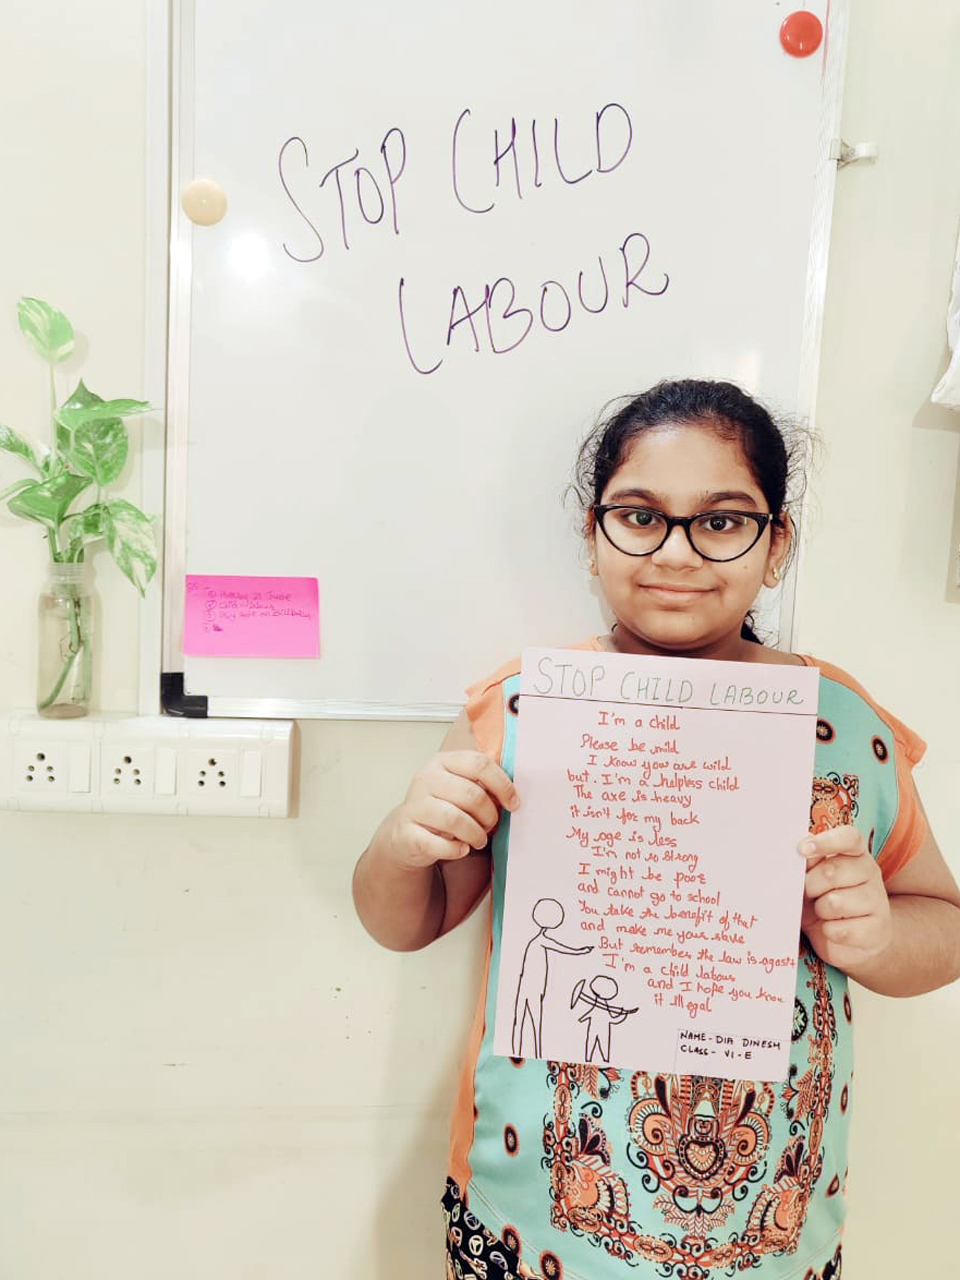 STOP CHILD
LABOUR
STOP CHILD LABOUR
I'm a child
Please be mild
I know you are wild
but. I'm a helpless child
The axe is heavy
it isn't for my back
My age is less
I'm not so strong
I might be poor
and cannot go to school
You take the benefit of that
and make me your slave
But remember the law is agast
I'm a child labour
and I hope you know
it illegal
NAME-DIA DINESH
CLASS- VI-E